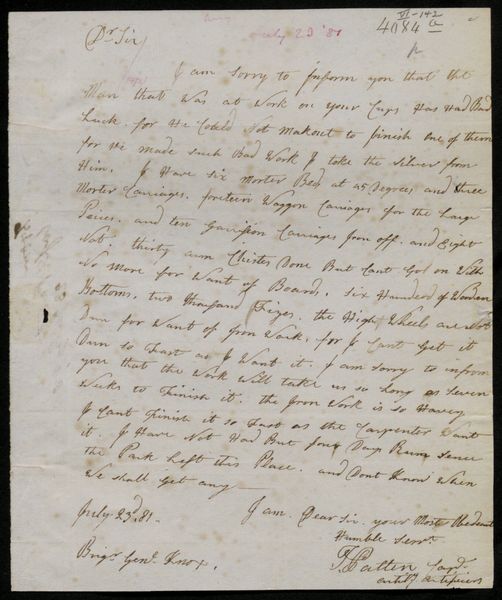 VI-142
4084
July 23 '81
Dr Sir
I am sorry to Inform you that the
Man that Was at Work on your Cups Has Had Bad
Luck. for He Could Not Makeout to finish one of them
for He made such Bad Work I take the silver from
Him. I Have six Morter Beds at 45 Degrees and three
Morter Carriages. forteen Waggon Carriages for the Large
Peices. and ten Garrison Carriages Iron off. and Eight
Not. thirty arm Chistes Done But Cant Gol on With
No more for Want of Boards. six Hunderd of Wooden
Bottoms. two thousand Fizes. the High Wheels are Not
Dun for Want of Iron Work. for I Cant Get it
Dun so fast as I Want it. I am sorry to inform
you that the Work Will take us so Long as seven
Weeks to Finish it. the Iron Work is so Heavey
I Cant Finish it so Fast as the Carpenter Want
it. I Have Not Had But four Days Rum sence
the Park Left this Place. and Dont Know When
We shall get any
July 23d 81.
I am. Dear Sir. your Most Obedient
Humble Servt.
Patten Capt.
artily artificers
Brigr Genl. Knox.